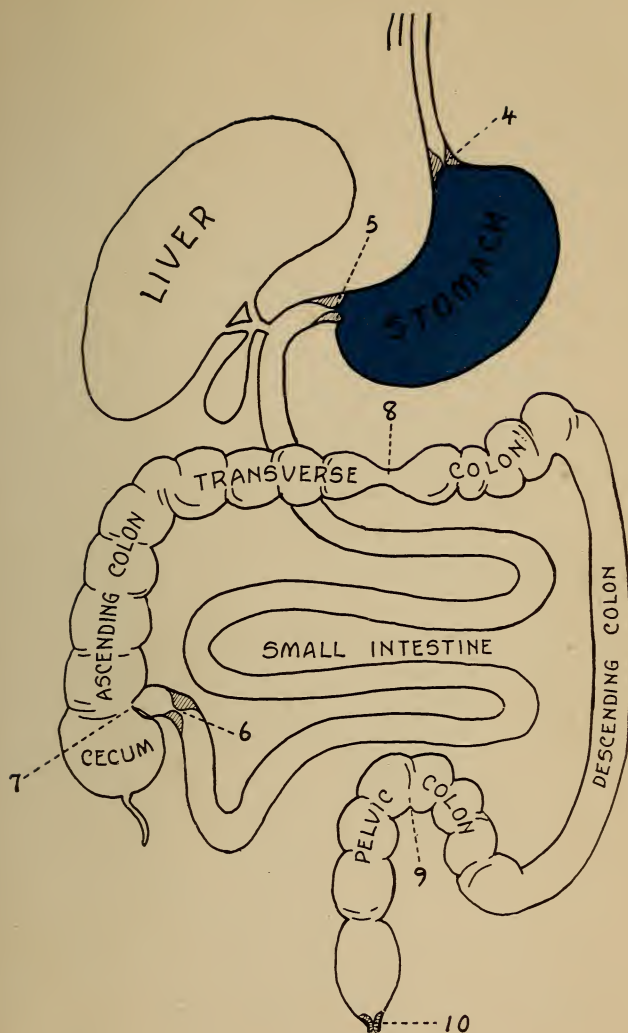 4
LIVER
5
STOMACH
8
TRANSVERSE COLON
ASCENDING COLON
SMALL INTESTINE
DESCENDING COLON
6
7
CECUM
PELVIC COLON
9
10